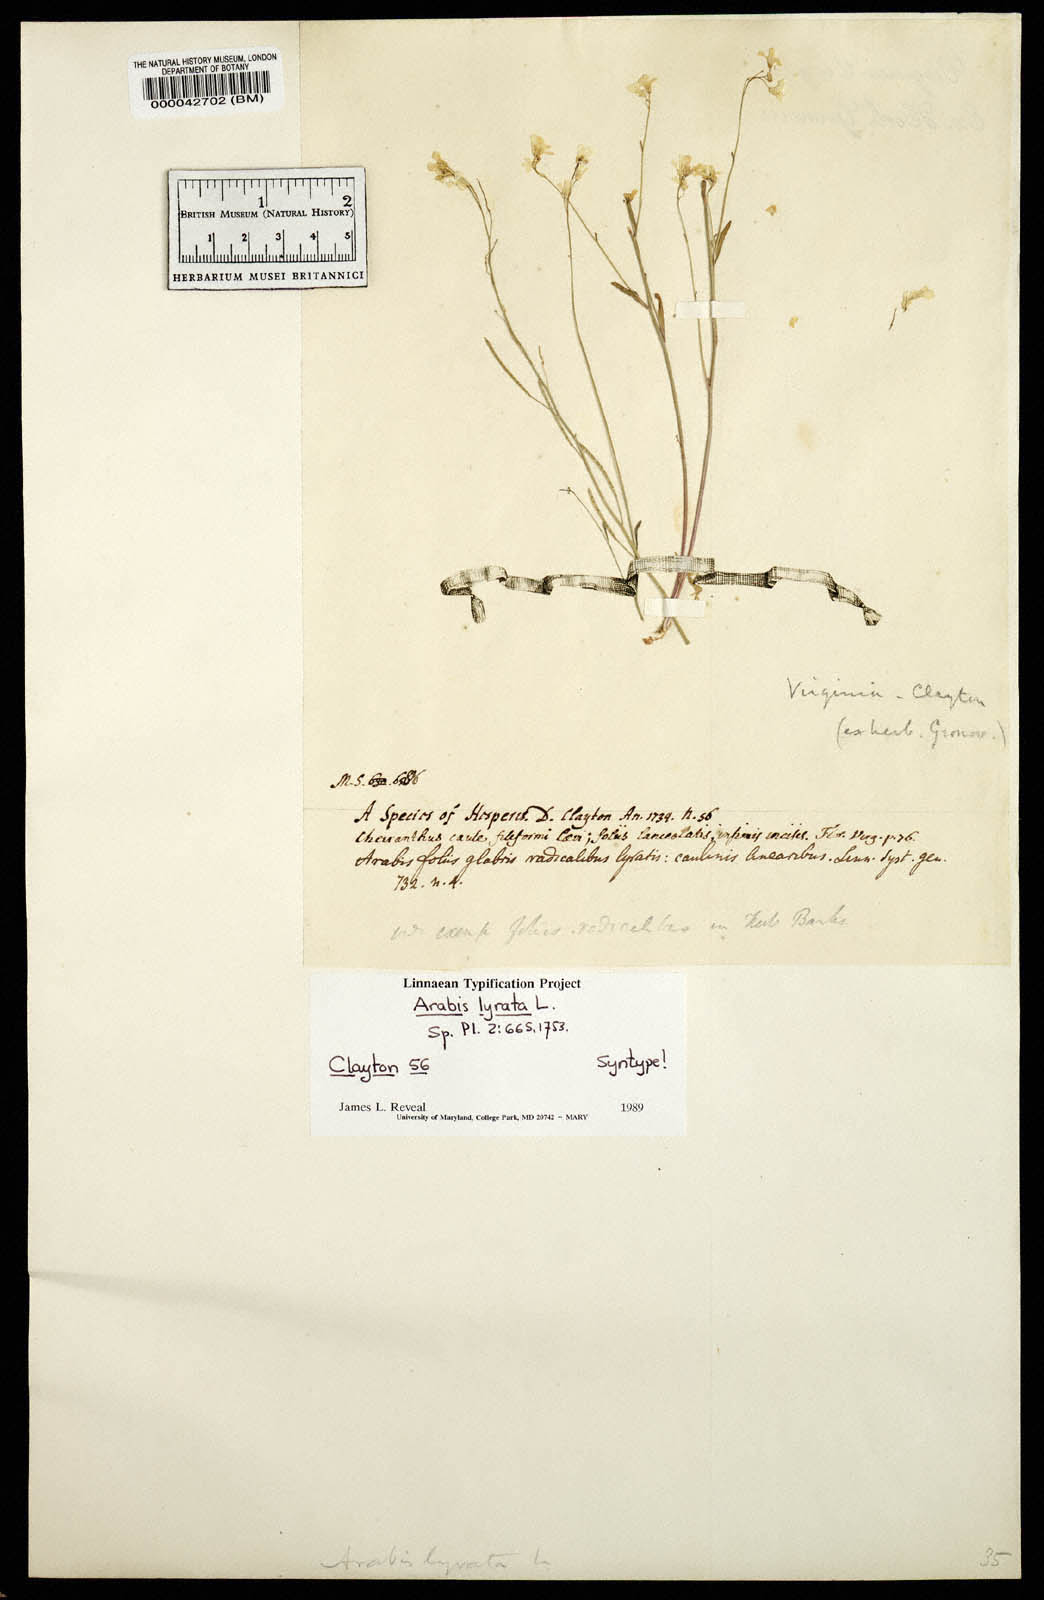 THE NATURAL HISTORY MUSEUM, LONDON
DEPARTMENT OF BOTANY
000042702 (BM)
1 2
BRITISH MUSEUM (NATURAL HISTORY)
1 2 3 4 5
HERBARIUM MUSEI BRITANNICI
Virginia - Clayton
(ex herb. Gronov.)
M.S. 686
A Species of Hesperis. D. Clayton An. 1734. N. 56
Cheiranthus caule filiformi levi; foliis lanceolatis, infimis incisis. Virg. p. 76
Arabis foliis glabris radicalibus lyratis: caulinis linearibus. Linn. Syst. gen.
732. n. 4.
foliis radicalibus in Herb Banks
Linnaean Typification Project
Arabis lyrata L.
Sp. Pl. 2: 665, 1753.
Clayton 56 Syntype!
James L. Reveal 1989
University of Maryland, College Park, MD 20742 – MARY
Arabis lyrata L
35